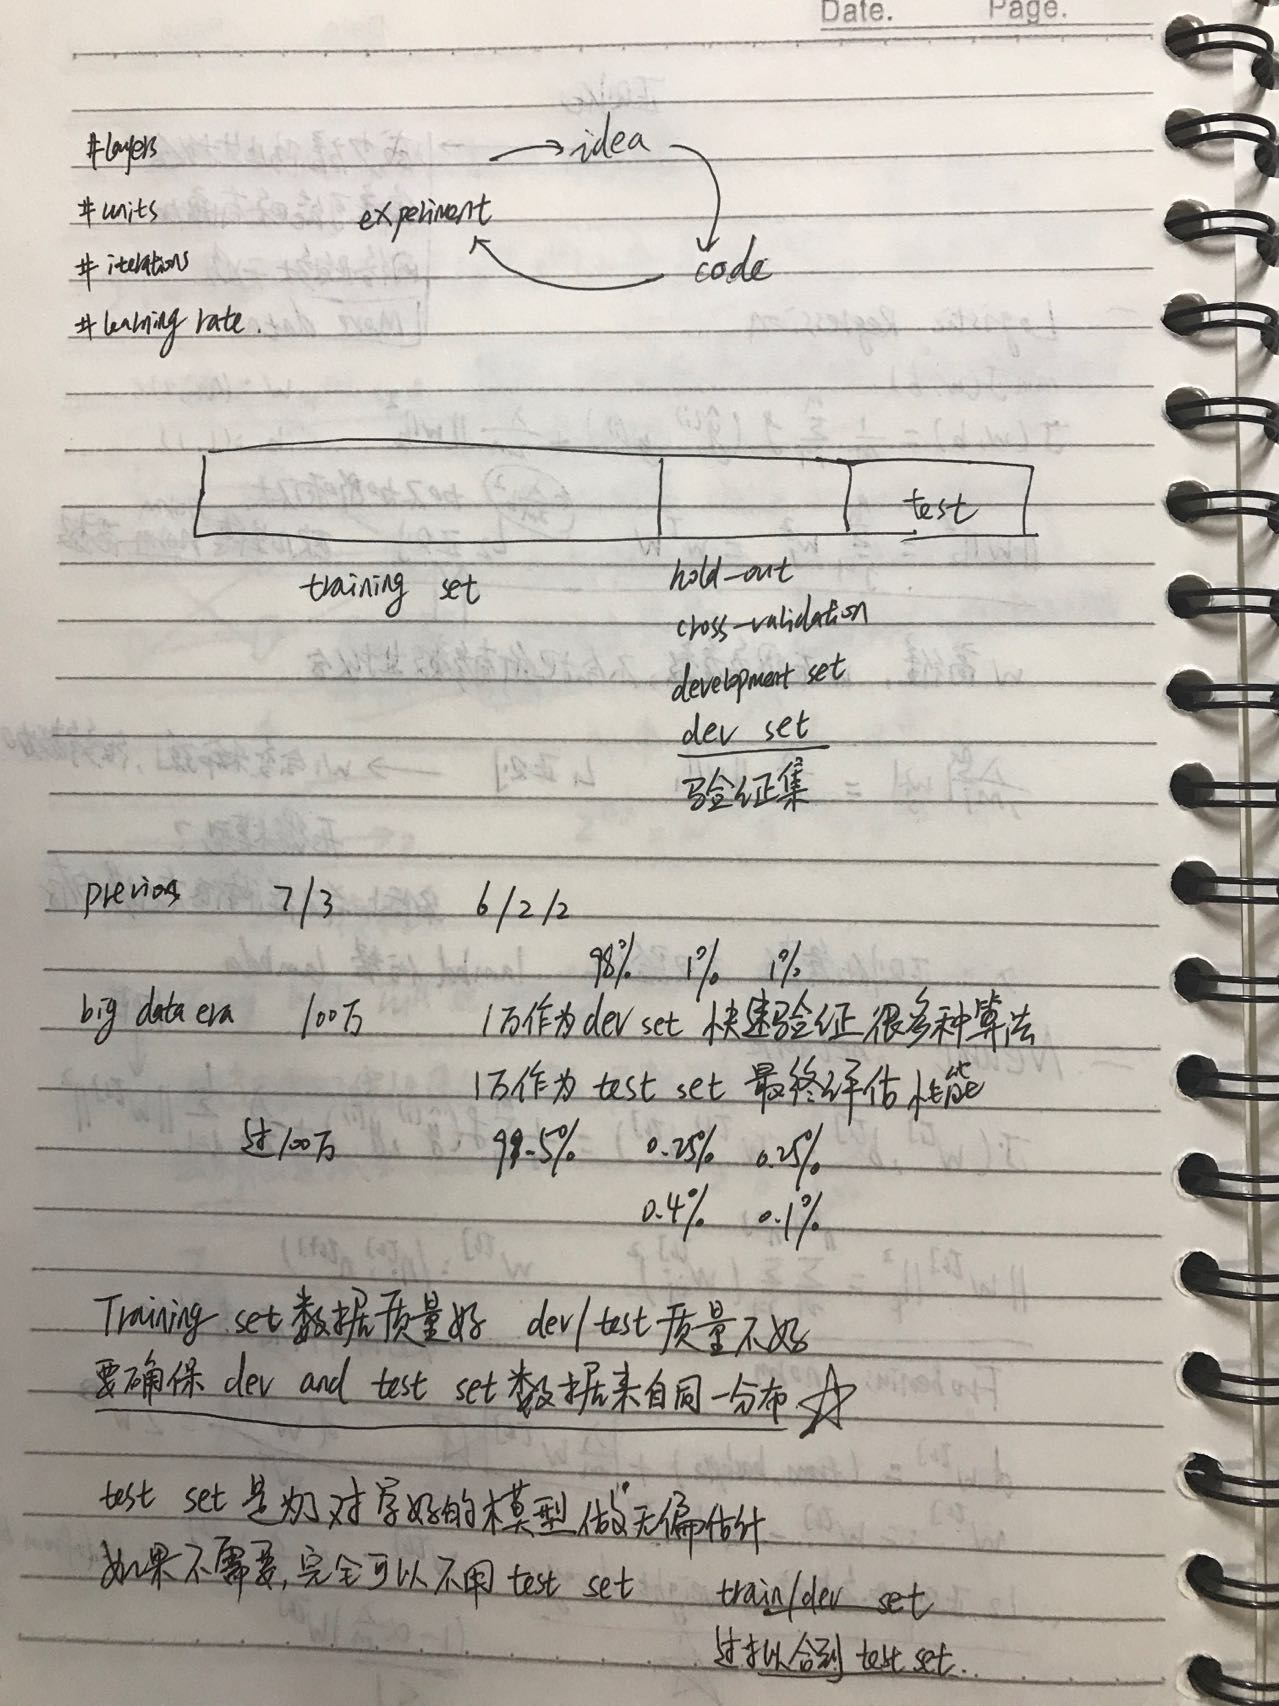 Date. Page.
#layers
#units
#iterations
#learning rate.
idea
experiment
code
test
training set
hold-out
cross-validation
development set
dev set
验证集
previous 7/3 6/2/2
98% 1% 1%
big data era 100万 1万作为dev set 快速验证很多种算法
1万作为 test set 最终评估性能
过100万 99.5% 0.25% 0.25%
0.4% 0.1%
Training set数据质量好 dev/test质量不好
要确保 dev and test set数据来自同一分布
test set 是为对学好的模型做无偏估计
如果不需要,完全可以不用 test set train/dev set
过拟合到 test set.